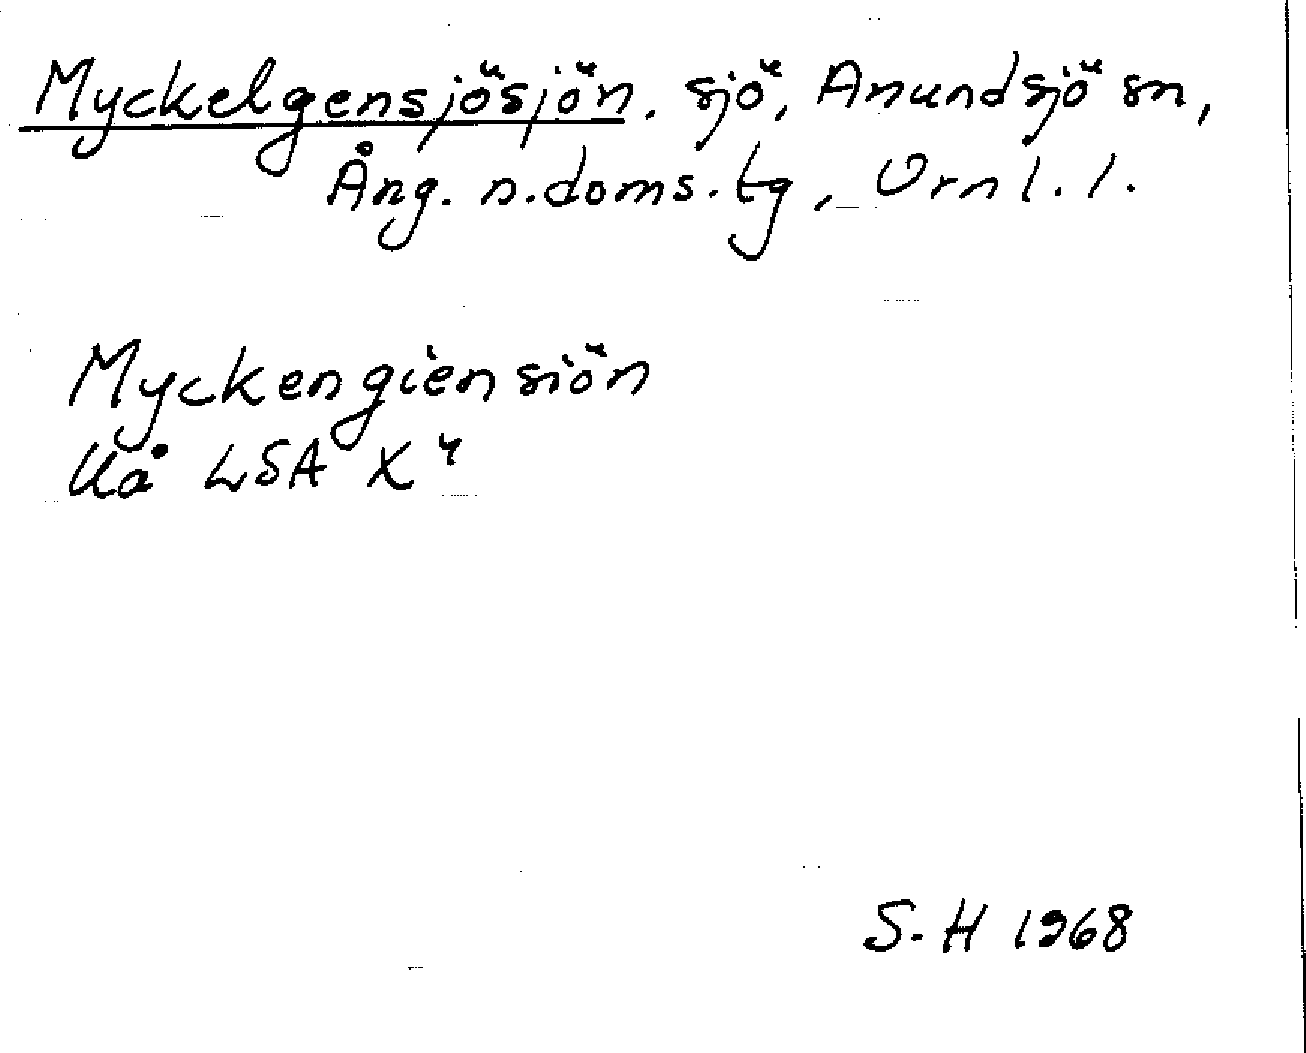 Myckelgensjösjön, sjö, Anundsjö sn,
Ång. n. doms. tg, Vrnl. l.
Myckengiensiön
Uå LSA X 4
S-H 1968